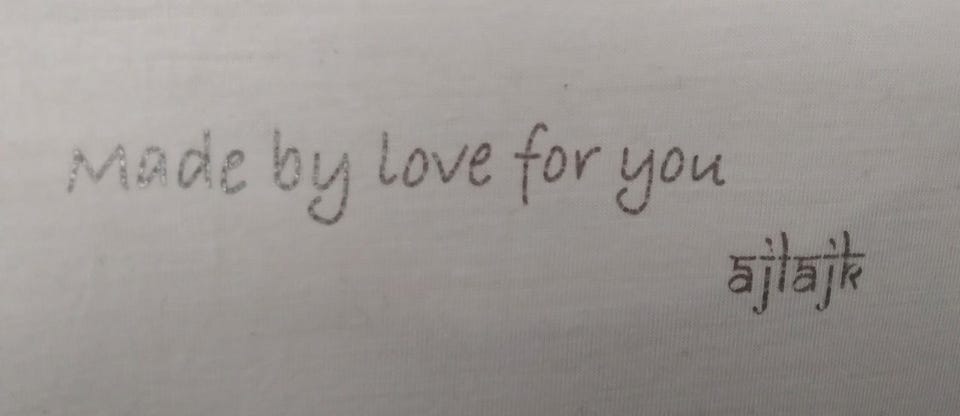 Made by love for you
ajlajk